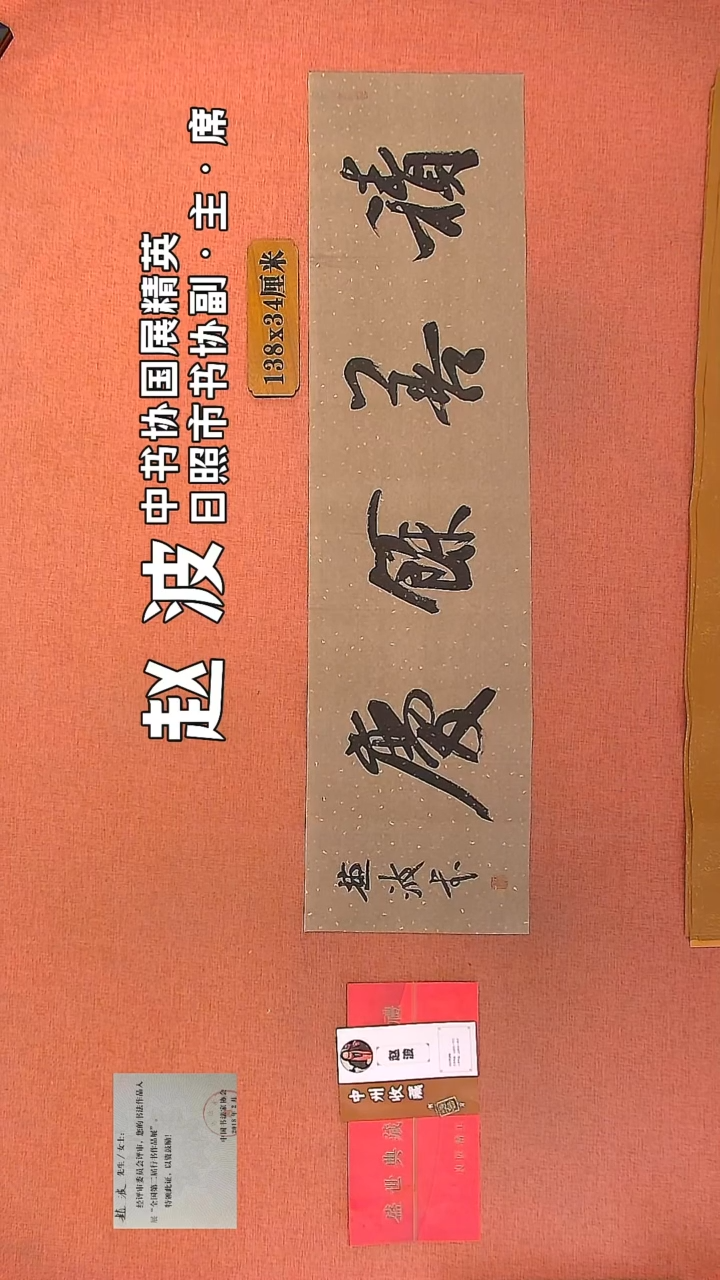 赵波
中书协国展精英
日照市书协副·主·席
138x34厘米
積善餘慶
趙波书
趙波 先生/女士：
经评审委员会评审，您的书法作品入
展“全国第二届行书作品展”。
特颁此证，以资鼓励！
中国书法家协会
2018年2月
中州收藏
赵波
盛世典藏